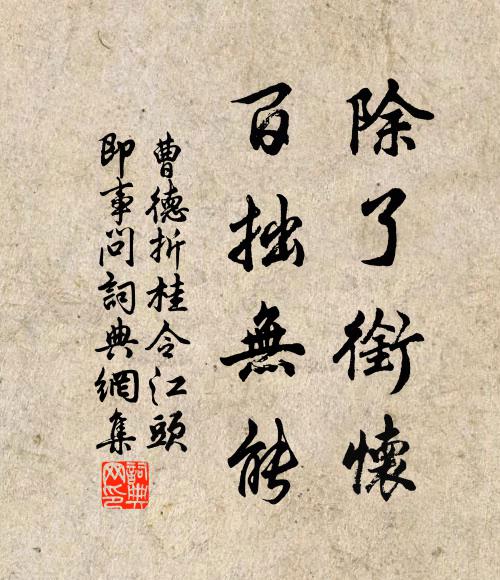 除了銜懷
百拙無能
曹德折桂令江頭
即事問詞典網集
詞典
网印